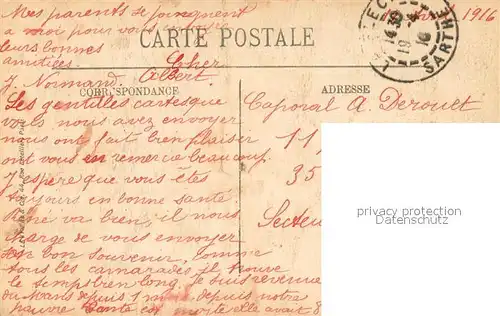 Mes parents se joingnent
a moi pour vous
leurs bonnes
amitiées. Cher
J. Normand. Albert.
avril 1916
EC
14 30
19 -4
16
SARTHE
CARTE POSTALE
CORRESPONDANCE
ADRESSE
Les gentilles cartes que
vous nous avez envoyer
nous ont fait bien plaisir
ont vous en remercie beaucoup.
J'espère que vous êtes
toujours en bonne santé
René va bien, il nous
charge de vous envoyer
son bon souvenir, comme
tous les camarades, il trouve
le temps bien long, je suis revenue
du Mans depuis 1 mois, depuis notre
pauvre tante est morte elle avait 8
Caporal A. Derouet
11
35
Secteu
privacy protection
Datenschutz